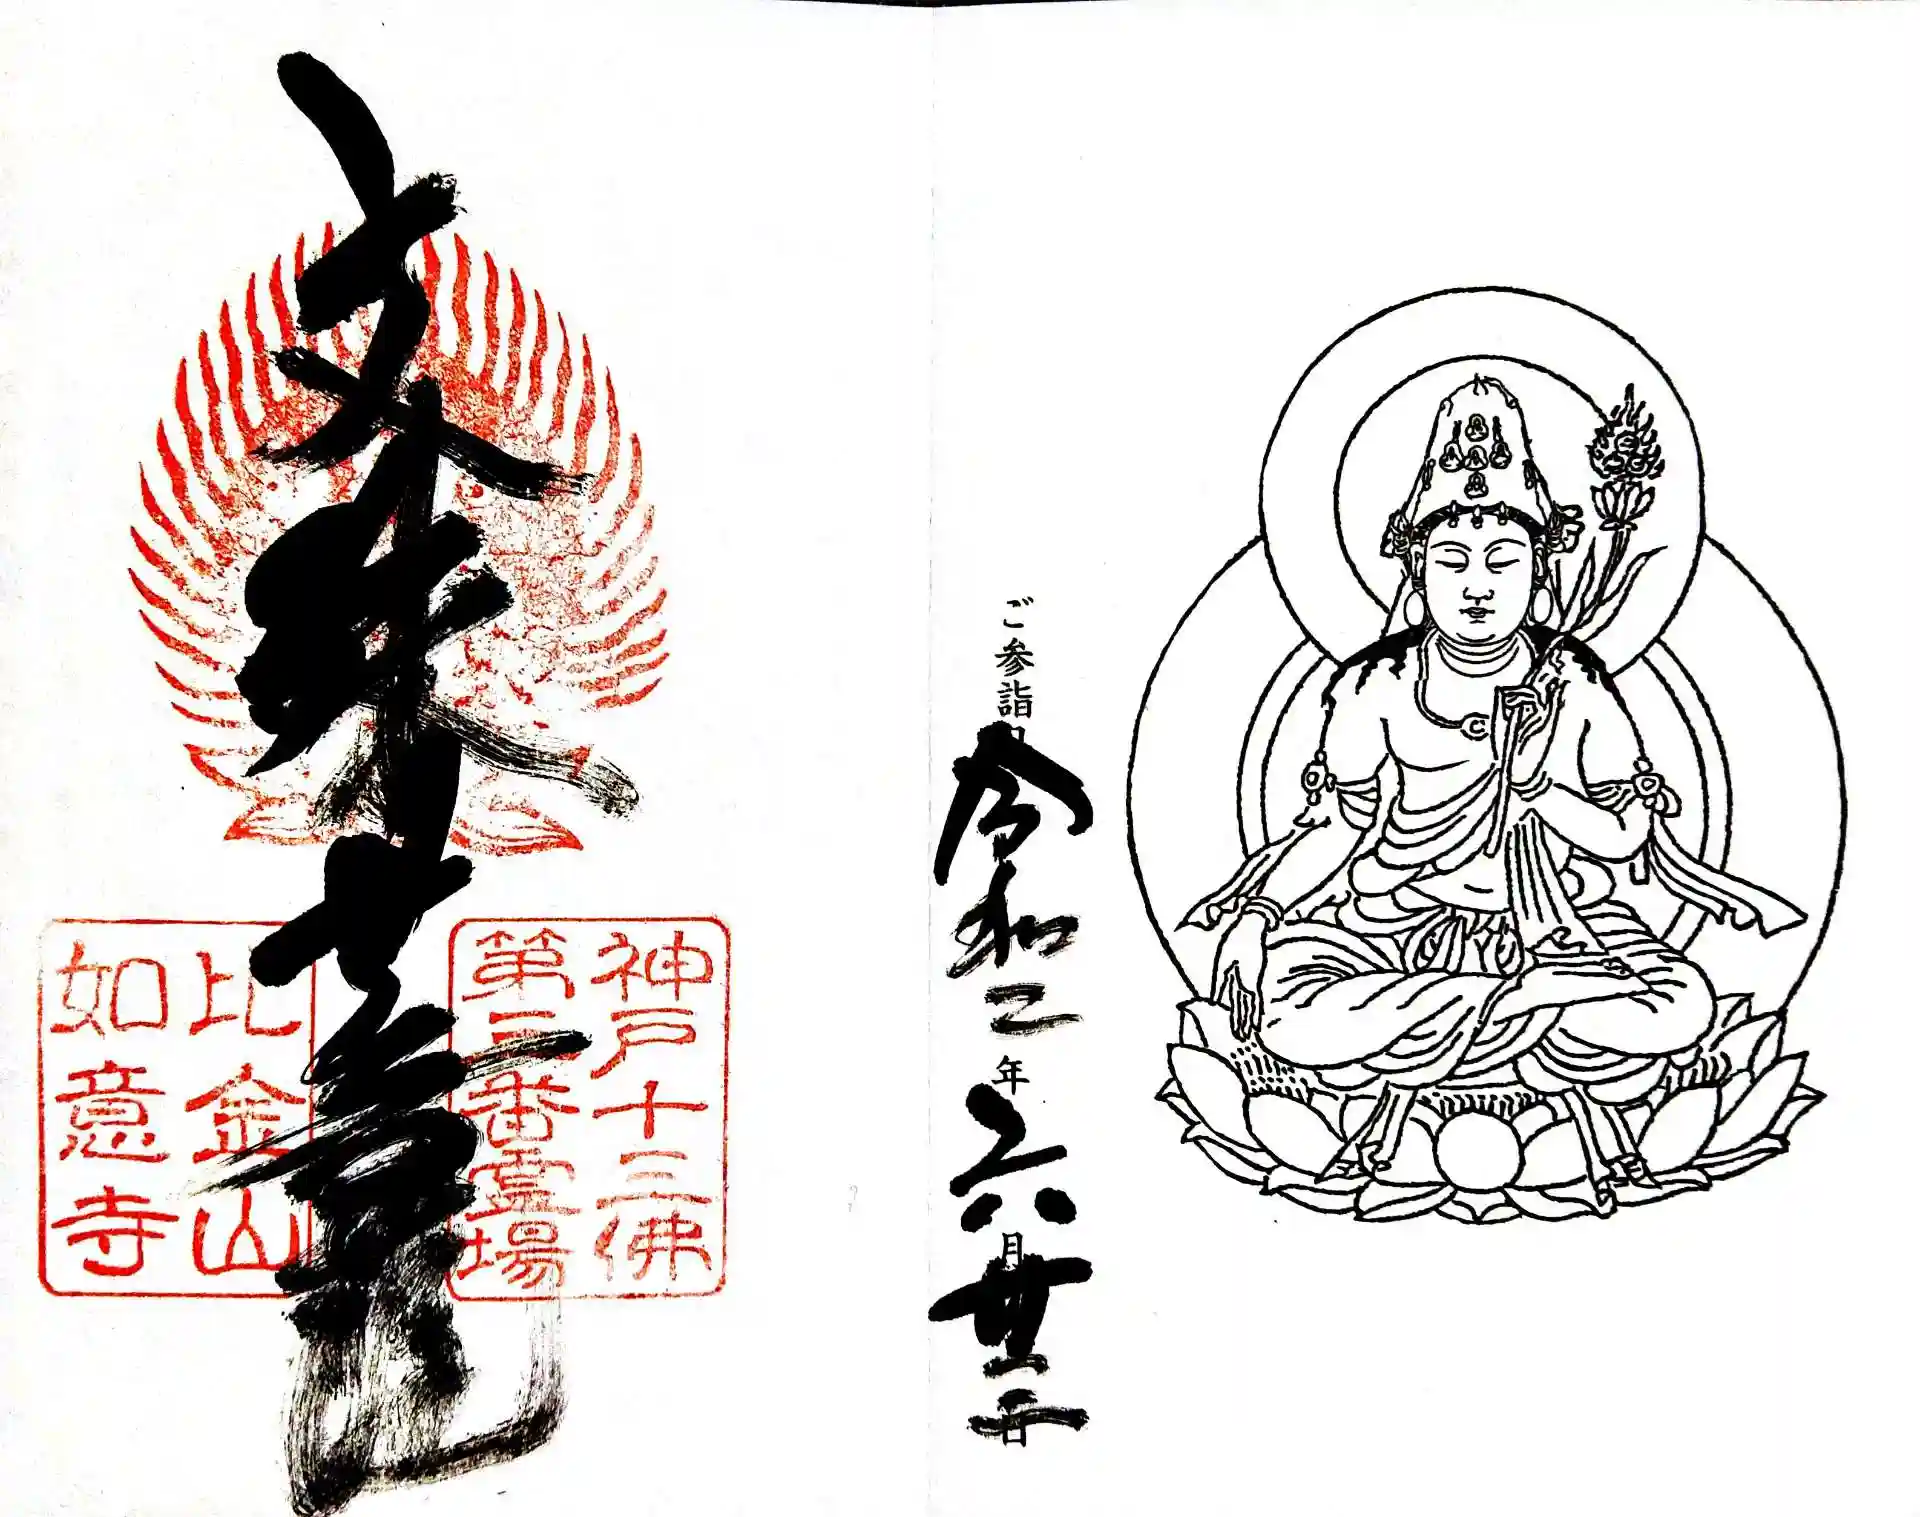 文殊
神戸十三佛
第三番霊場
比金山
如意寺
ご参詣日
令和二年六月廿二日